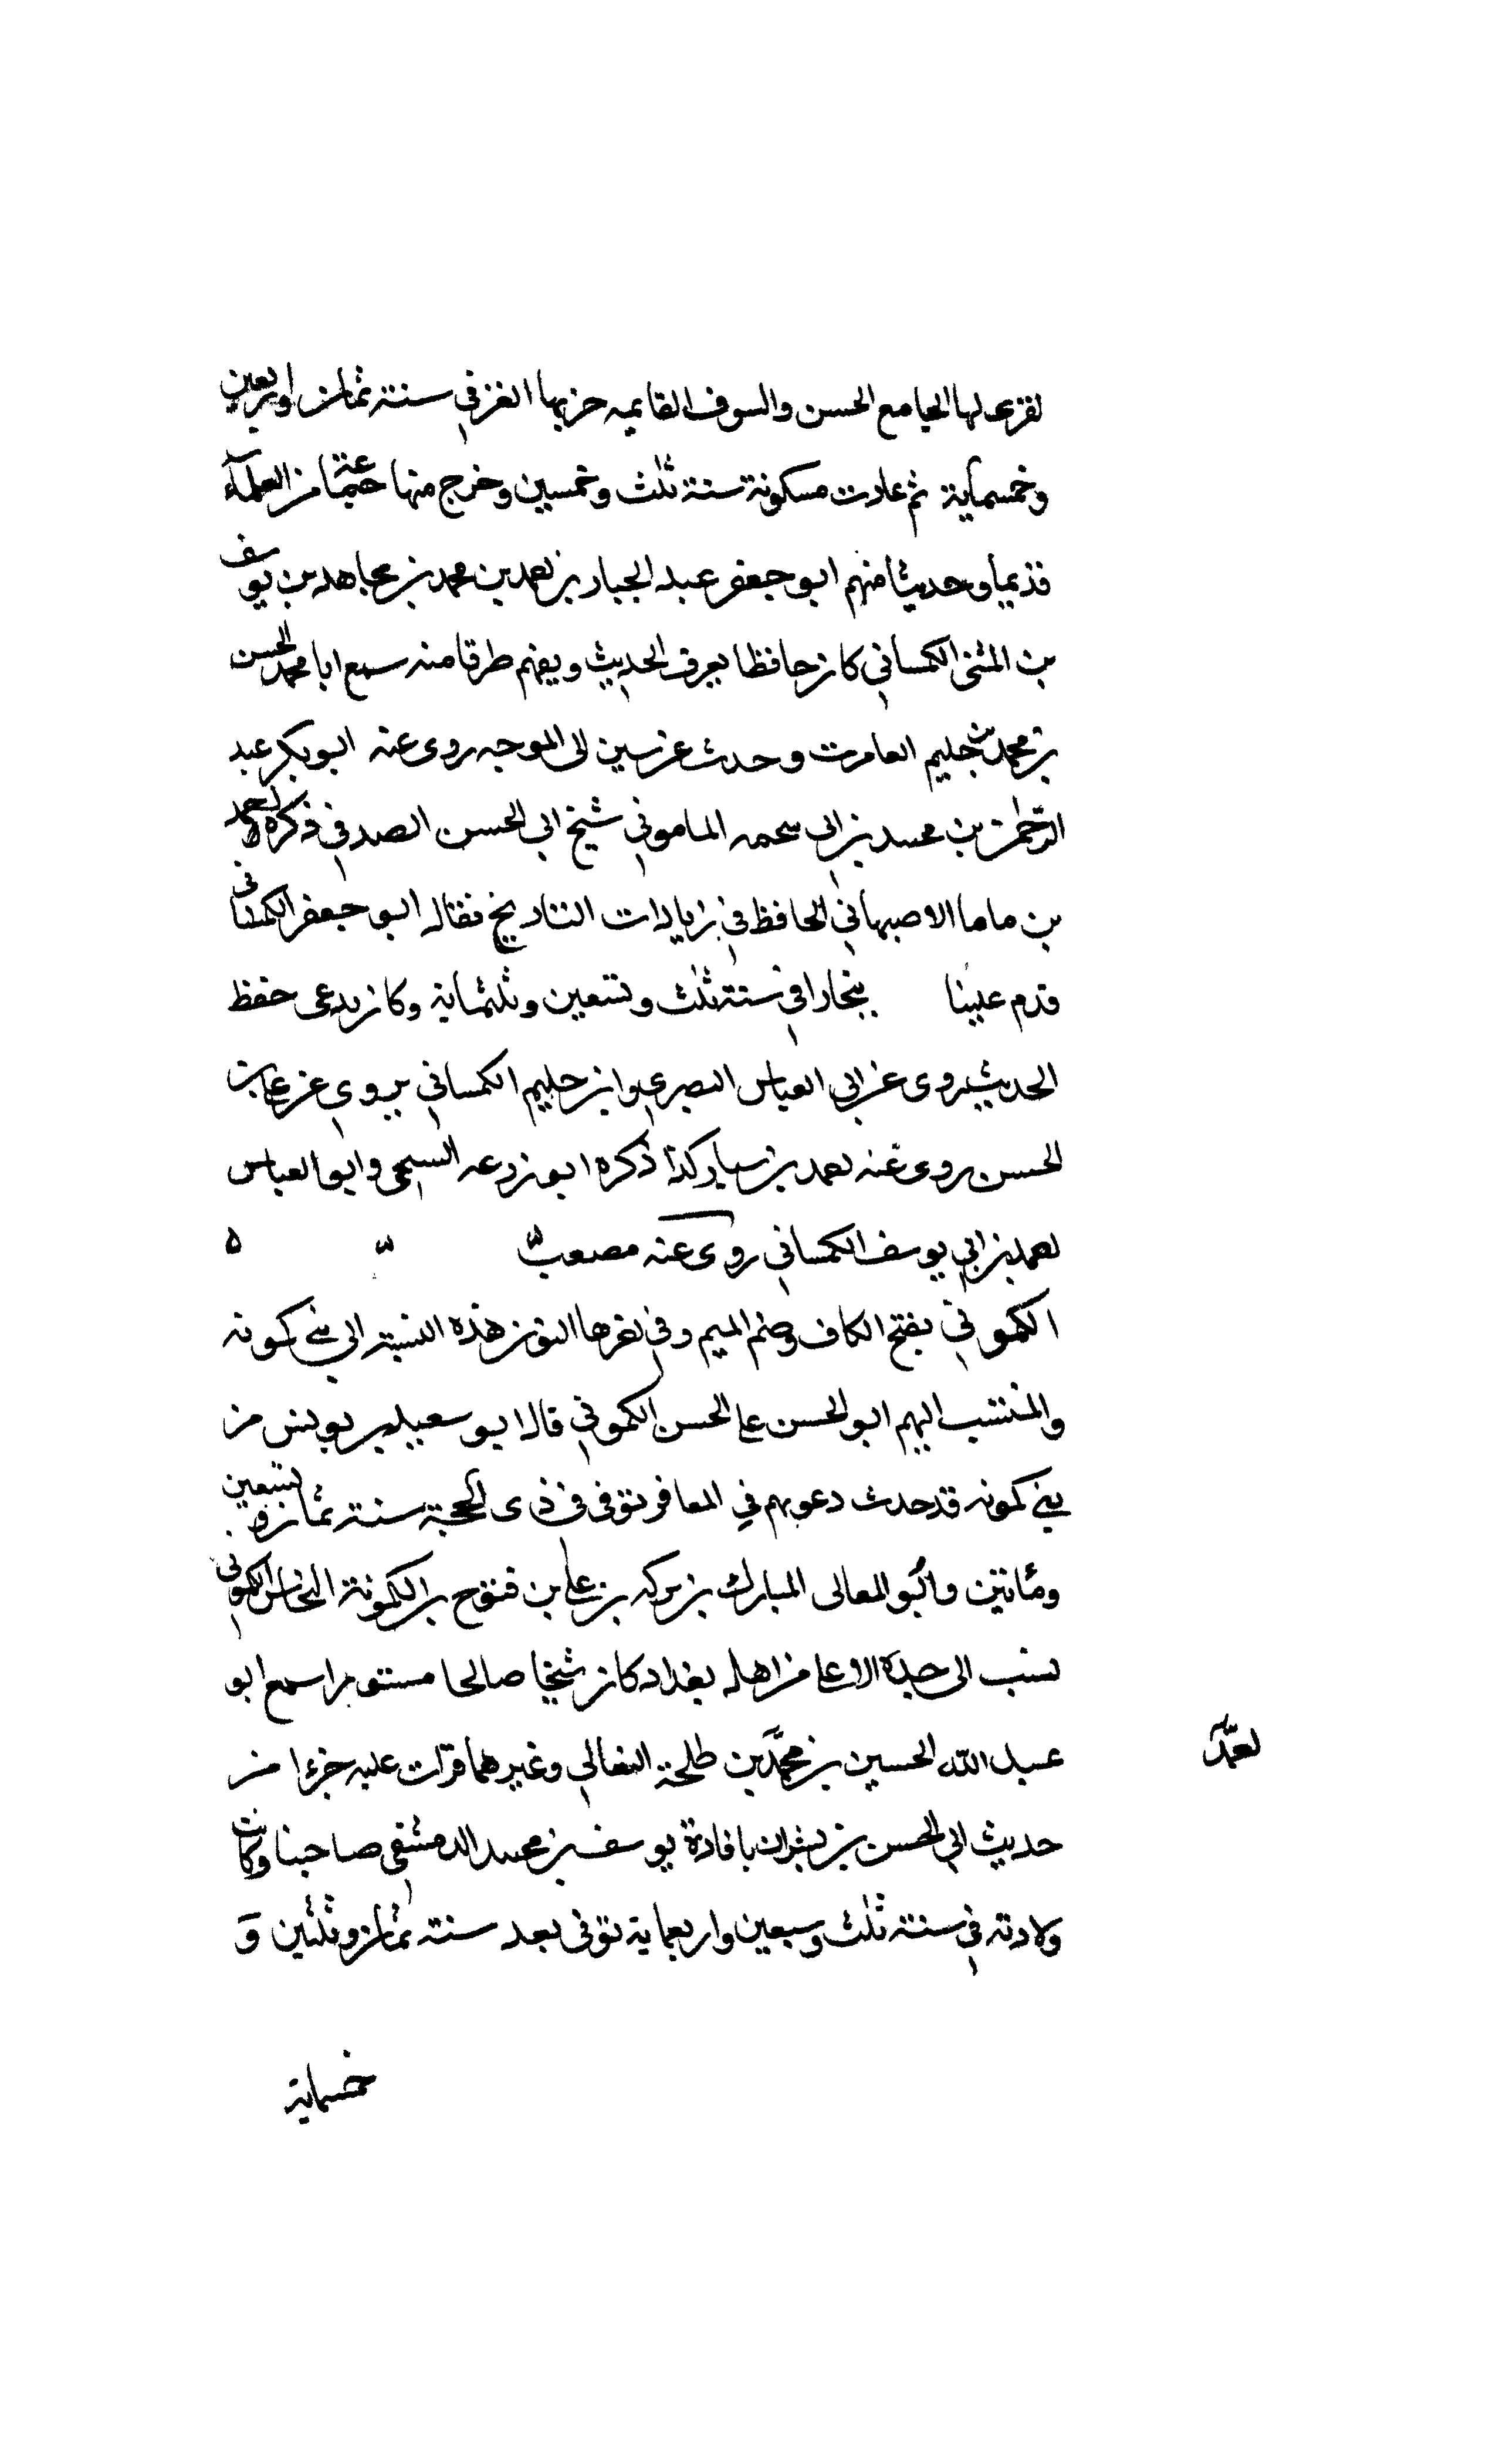 لقرى لها الجامع الحسن والسوق القايمه خربها الغز في سنة ثمان واربعين
وخمسماية ثم عادت مسكونة سنة ثلث وخمسين وخرج منها من العلماء
قديما وحديثا منهم ابو جعفر عبد الجبار بن احمد بن محمد بن مجاهد بن يوسف
بن المثنى الكمساني كان حافظا يعرف الحديث ويفهم طرقا منه سمع ابا محمد الحسن
بن محمد بن حليم العامرى وحدث عن ابى الموجه روى عنه ابو بكر عبد
الرحمن بن محمد بن ابى المامونى شيخ ابى الحسن الصدفى ذكره احمد
بن ماما الاصبهانى الحافظ فى زيادات التاريخ فقال ابو جعفر الكمسانى
قدم علينا بخارا فى سنة ثلث وتسعين وثلثماية وكان يدعى حفظ
الحديث يروى عن ابى العباس البصرى وابن حليم الكمسانى يروى عن على بن
الحسن روى عنه احمد بن سيار كذا ذكره ابو زرعه السبحى وابو العباس
احمد بن ابى يوسف الكمسانى روى عنه مصعب ه
الكمونى بفتح الكاف وضم الميم وفى اخرها النون هذه النسبة الى بنى كمونه
والمنتسب اليهم ابو الحسن على الحسن الكمونى قال ابو سعيد بن يونس من
بنى كمونه قد حدث دعوبهم فى المعافر توفى فى ذى الحجة سنة ثمان وتسعين
ومأتين وابو المعالى المبارك بن بركه بن على بن فتوح بن الكمونة النخاس الكمونى
نسب الى جده الاعلى من اهل بغداد كان شيخا صالحا مستورا سمع ابو
عبد الله الحسين بن محمد بن طلحة النعالى وغيرهما قرات عليه جزءا من
احمد
حديث ابى الحسن بن بشران بافادة يوسف بن محمد الدمشقى صاحبنا وكانت
ولادته فى سنة ثلث وسبعين واربعماية توفى بعد سنة ثمان وثلثين و
خمسماية